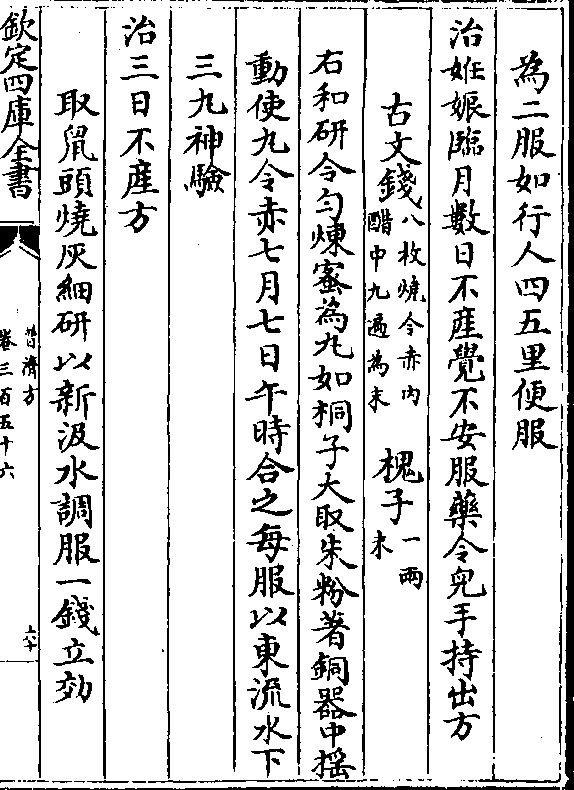 為二服如行人四五里便服
治姙娠臨月數日不産覺不安服藥令兒手持出方
古文錢八枚燒令赤内醋中九遍為末 槐子一兩末
右和研令勻煉蜜為丸如桐子大取朱粉著銅器中揺
動使丸令赤七月七日午時合之每服以東流水下
三丸神驗
治三日不産方
取鼠頭燒灰細研以新汲水調服一錢立効
欽定四庫全書
普濟方
卷三百五十六